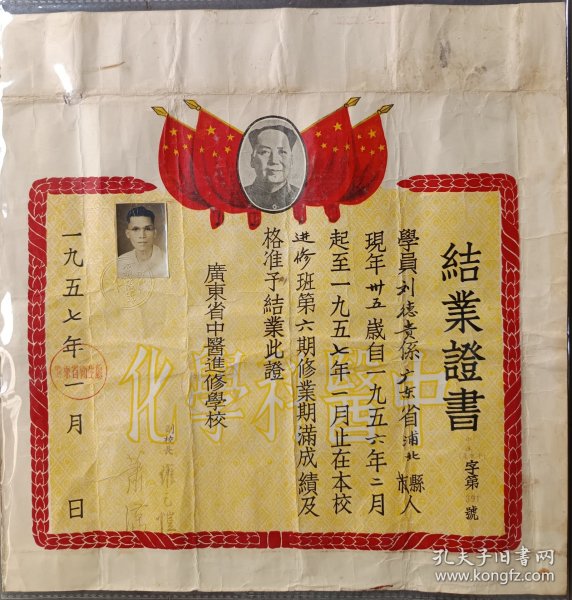 結業證書
字第391號
學員刘德贵係广东省浦北縣人
現年卅五歲自一九五六年二月
起至一九五七年一月止在本校
进修班第六期修業期滿成績及
格准予結業此證
廣東省中醫進修學校
副校長 罗元恺
一九五七年一月 日
中醫科學化
孔夫子旧书网
www.kongfz.com